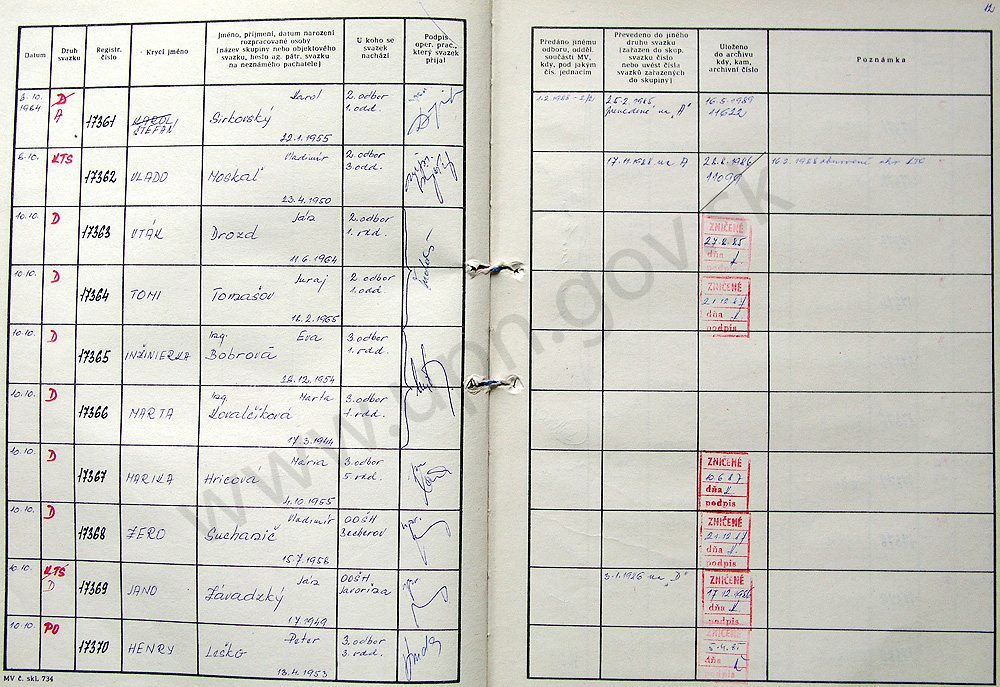 12
Datum
Druh
svazku
Registr.
číslo
Krycí jméno
Jméno, příjmení, datum narození
rozpracované osoby
(název skupiny nebo objektového
svazku, heslo ag. pátr. svazku
na neznámého pachatele)
U koho se
svazek
nachází
Podpis
oper. prac.,
který svazek
přijal
Předáno jinému
odboru, odděl.
součásti MV,
kdy, pod jakým
čís. jednacím
Převedeno do jiného
druhu svazku
(zařazen do skup.
svazku číslo
nebo uvést čísla
svazků zařazených
do skupiny)
Uloženo
do archivu
kdy, kam,
archivní číslo
Poznámka
8.10.
1984
D
A
17361
KAROL
ŠTEFAN
Karol
Sirkovský
22.1.1955
2. odbor
1. odd.
25.2.1985
Prevedené na "A"
16.5.1989
11622
8.10.
KTS
17362
VLADO
Vladimír
Moskaľ
23.4.1950
2. odbor
3. odd.
17.11.1988 na A
11099
10.10.
D
17363
VTÁK
Ján
Drozd
11.6.1964
2. odbor
1. odd.
ZNIČENÉ
dňa
10.10.
D
17364
TOMI
Juraj
Tomašov
2. odbor
1. odd.
ZNIČENÉ
21.12.87
dňa
podpis
10.10.
D
17365
INŽINIERKA
Ing. Eva
Bobrová
28.12.1954
3. odbor
1. odd.
10.10.
D
17366
MARTA
Ing. Marta
Kovalčíková
17.3.1944
3. odbor
1. odd.
10.10.
D
17367
MARIKA
Mária
Hricová
4.10.1955
3. odbor
5. odd.
ZNIČENÉ
10.6.87
dňa
podpis
10.10.
D
17368
ZERO
Vladimír
Suchanič
15.7.1958
OOŠH
ZNIČENÉ
21.12.87
dňa
podpis
10.10.
KTS
D
17369
JANO
Ján
Závadzký
1.7.1949
OOŠH
Javorina
3.1.1986 na "D"
ZNIČENÉ
17.12.1986
dňa
podpis
10.10.
PO
17370
HENRY
Peter
Leško
13.4.1953
3. odbor
3. odd.
ZNIČENÉ
dňa
MV č. skl. 734
www.upn.gov.sk